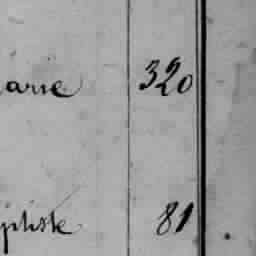 arie 320
ptiste 81